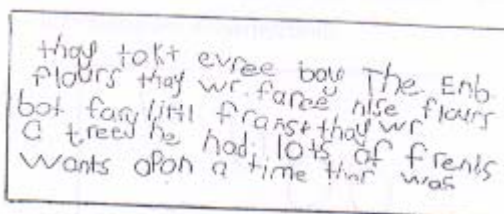 thay tokt evree bou The Enb
flours thay wr faree nise flours
bot fary littl frans+thay wr
a treed he had lots of frends
wants opon a time thir was